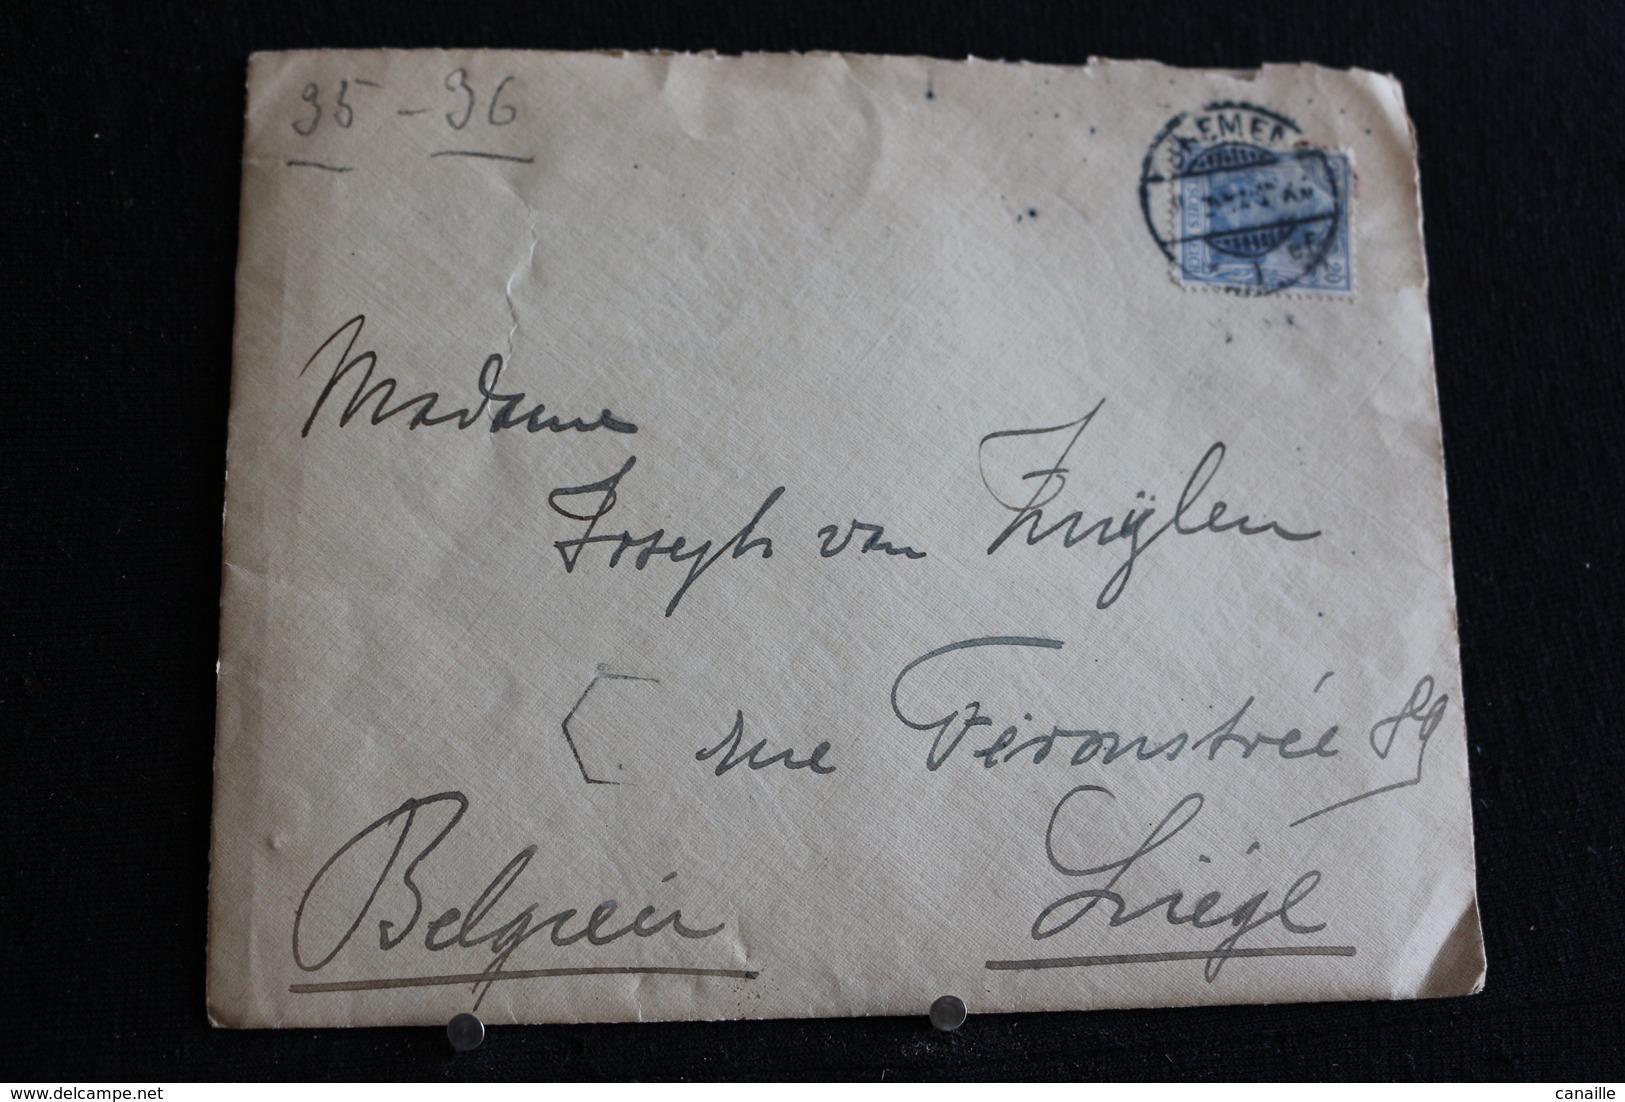 95 - 96
BREMEN
20
Madame
Joseph van Zuÿlen
rue Féronstrée 89
Belgien
Liège
delcampe.net
canaille